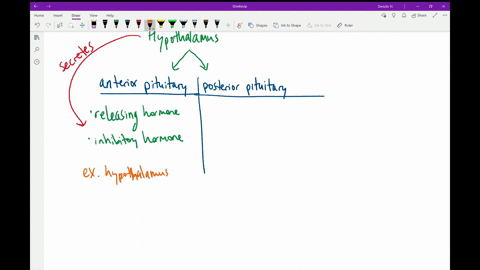 OneNote
Home Insert Draw View Help
Shapes Ink to Shape Ink to Text Ruler
Hypothalamus
secretes
anterior pituitary posterior pituitary
• releasing hormone
• inhibitory hormone
ex. hypothalamus